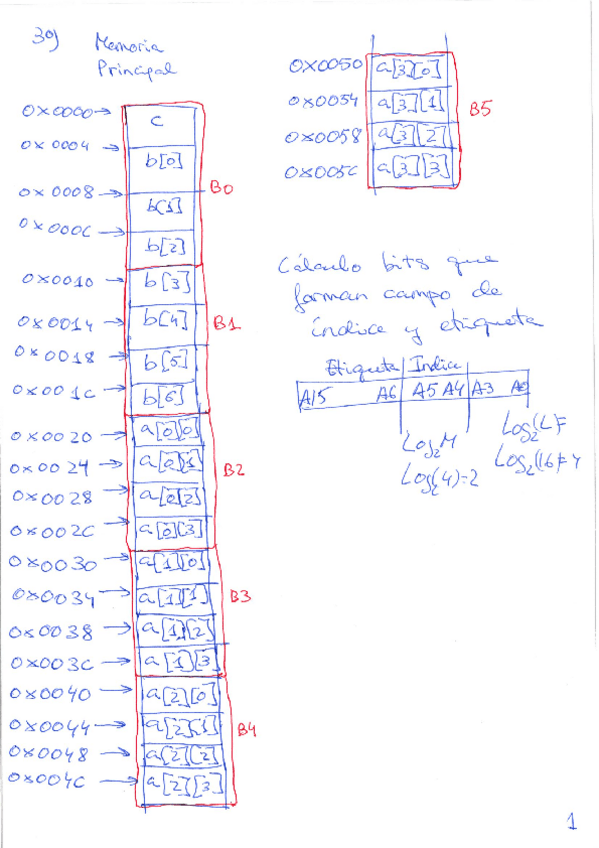 39) Memoria
Principal
0x0000→ c
0x0004→ b[0]
0x0008→ b[1]
0x000C→ b[2]
B0
0x0010→ b[3]
0x0014→ b[4]
0x0018→ b[5]
0x001C→ b[6]
B1
0x0020→ a[0][0]
0x0024→ a[0][1]
0x0028→ a[0][2]
0x002C→ a[0][3]
B2
0x0030→ a[1][0]
0x0034→ a[1][1]
0x0038→ a[1][2]
0x003C→ a[1][3]
B3
0x0040→ a[2][0]
0x0044→ a[2][1]
0x0048→ a[2][2]
0x004C→ a[2][3]
B4
0x0050 a[3][0]
0x0054 a[3][1]
0x0058 a[3][2]
0x005C a[3][3]
B5
Cálculo bits que
forman campo de
índice y etiqueta
Etiqueta Indice
A15 A6 A5 A4 A3 A0
Log₂M Log₂(L)=
Log₂(4)=2 Log₂(16)=4
1